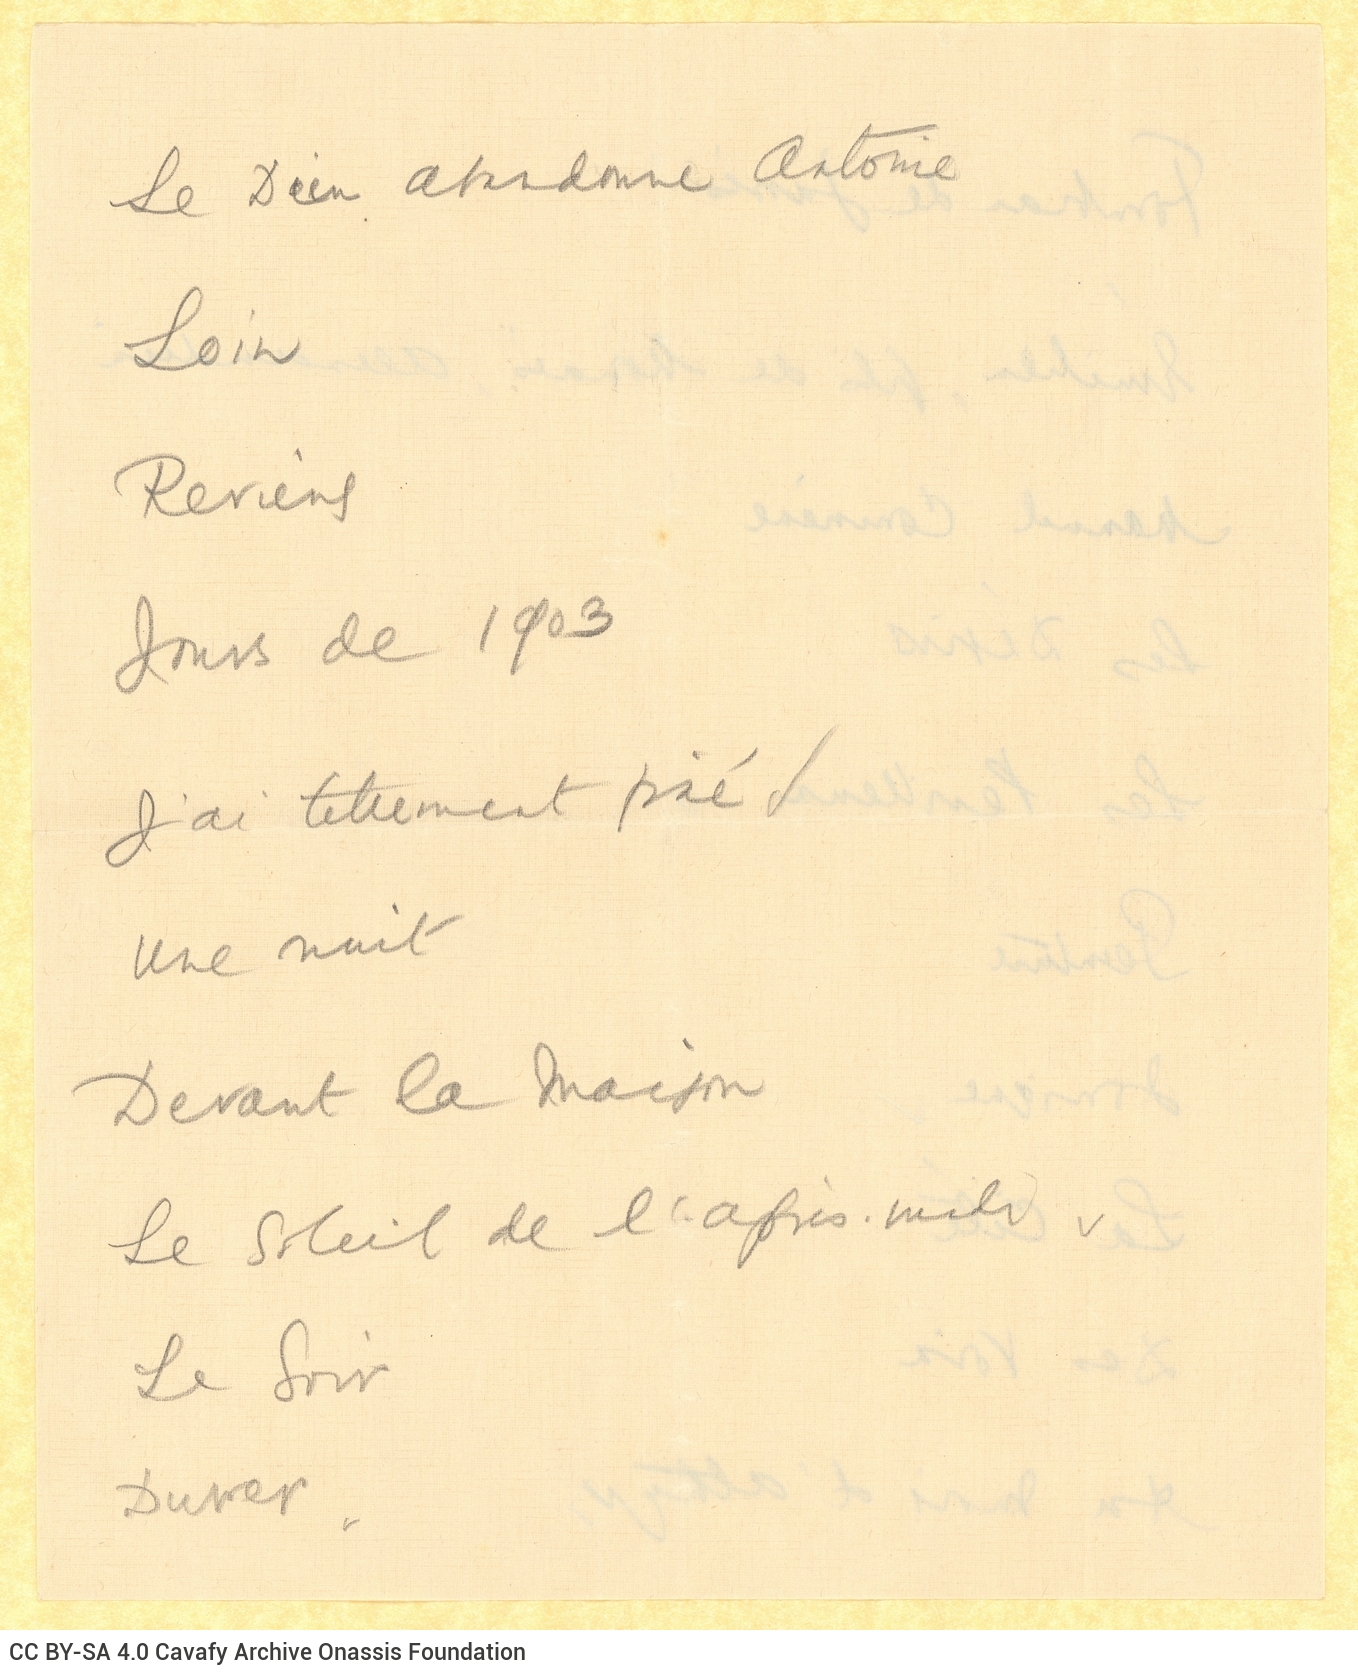 Le Dieu abandonne Antoine
Loin
Reviens
Jours de 1903
J'ai tellement fixé
Une nuit
Devant la Maison
Le Soleil de l'après-midi
Le Soir
Durer
CC BY-SA 4.0 Cavafy Archive Onassis Foundation